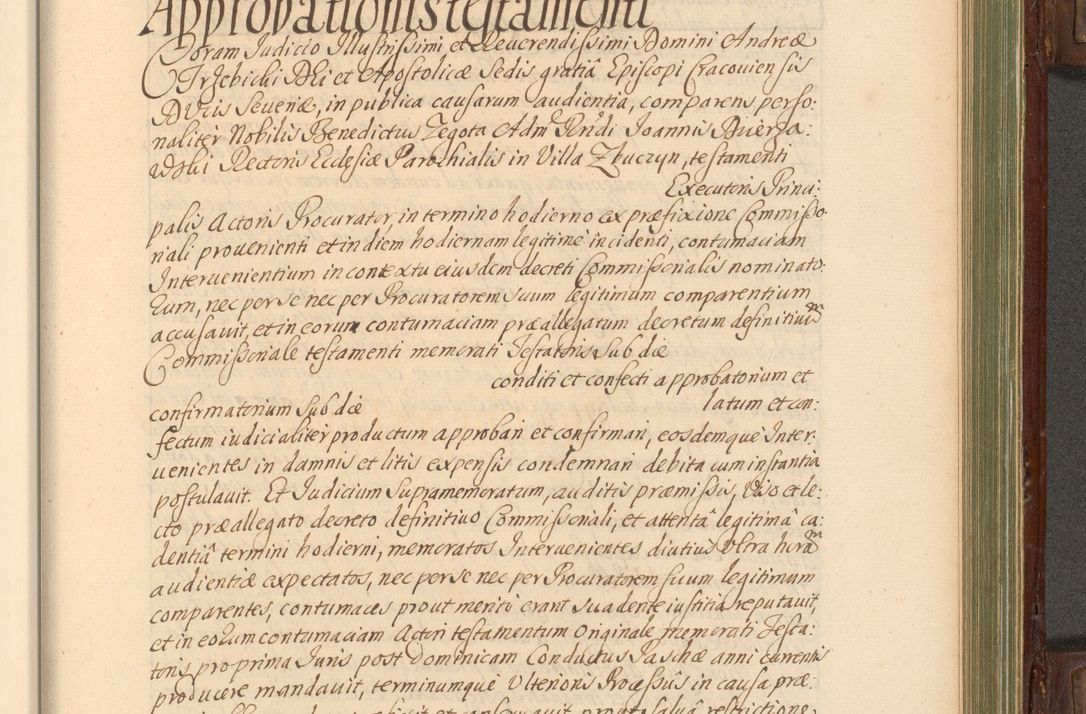 Approbationis testamenti
Coram Iudicio Illustrissimi et Reuerendissimi Domini Andreæ
Trzebicki Dei et Apostolicæ Sedis gratiâ Episcopi Cracouiensis
Ducis Seueriæ, in publica causarum audientia, comparens perso:
naliter Nobilis Benedictus Zegota Admˢ Rndi Ioannis
Rectoris Ecclesiæ Parochialis in Villa Zbuczyn, testamenti
Executoris Princi:
palis Actoris Procurator, in termino hodierno ex præfixione Commisso:
riali prouenienti et in diem hodiernam legitimè incidenti, contumaciam
Interuenientium in contextu eiusdem decreti Commissorialis nominato:
rum, nec per se nec per Procuratorem suum legitimum comparentium
accusauit, et in eorum contumaciam præallegatum decretum definitiuũ
Commissoriale testamenti memorati Testatoris sub die
conditi et confecti approbatorium et
confirmatorium sub die latum et con:
fectum iudicialiter productum approbari et confirmari, eosdemquè Inter:
uenientes in damnis et litis expensis condemnari debita cum instantia
postulauit. Et Iudicium supramemoratum, auditis præmissis, viso et le:
cto præallegato decreto definitiuo Commissoriali, et attentâ legitimâ ca:
dentiâ termini hodierni, memoratos Interuenientes diutius vltra horam
audientiæ expectatos, nec per se nec per Procuratorem suum legitimum
comparentes, contumaces prout meriti erant suadente iustitia reputauit,
et in eorum contumaciam Actori testamentum originale memorati Testa:
toris pro prima Iuris post Dominicam Conductus Paschæ anni currentis
producere mandauit, terminumquè vlterioris Processûs in causa præ:
et conseruauit, prout salua restrictione